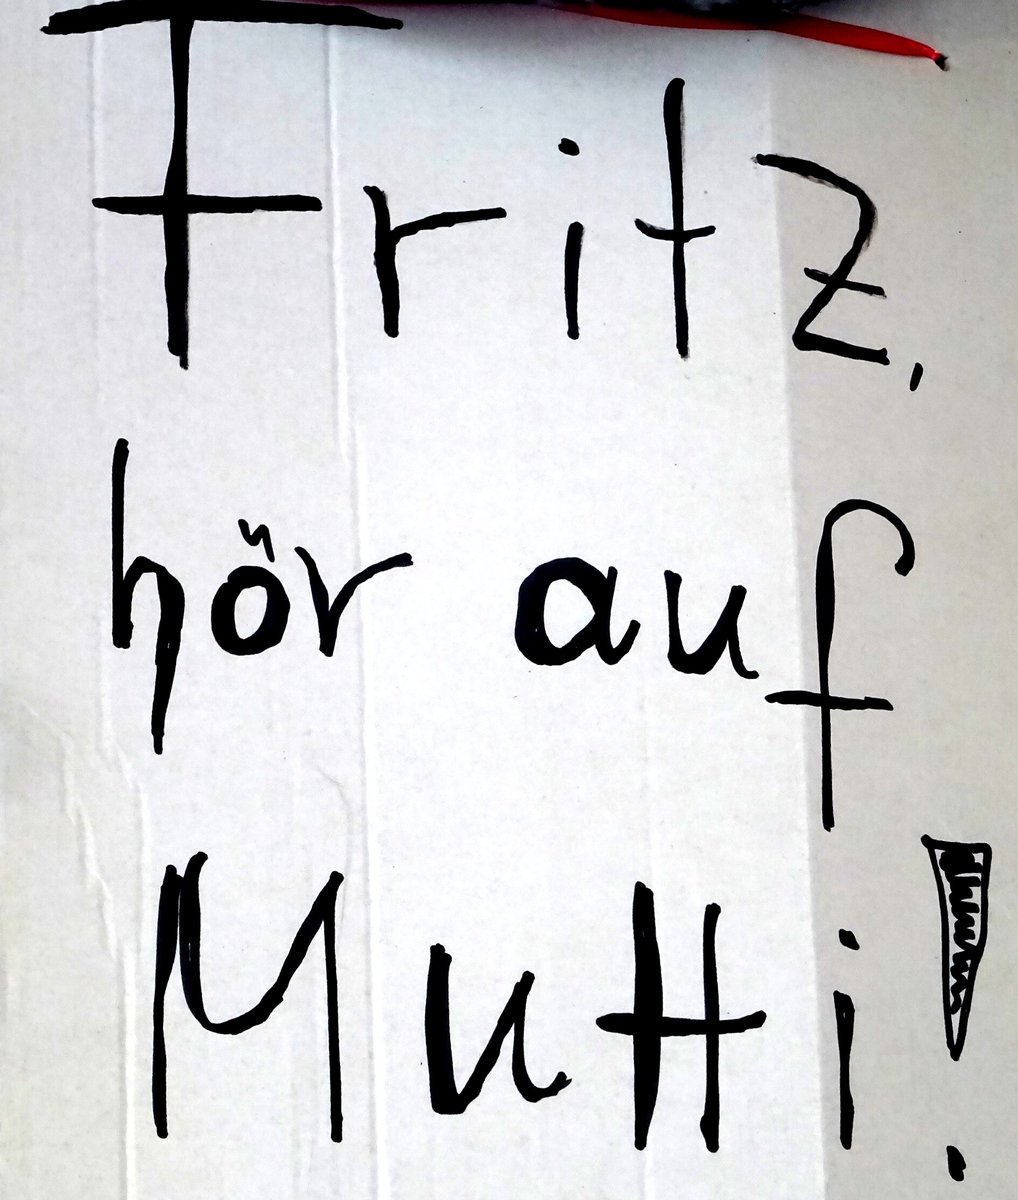 Fritz,
hör auf
Mutti!